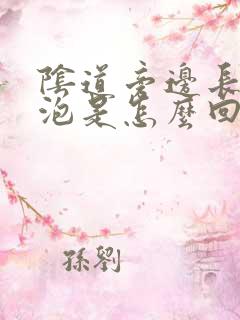 陰道旁邊長
泡是怎麼回
孫劉